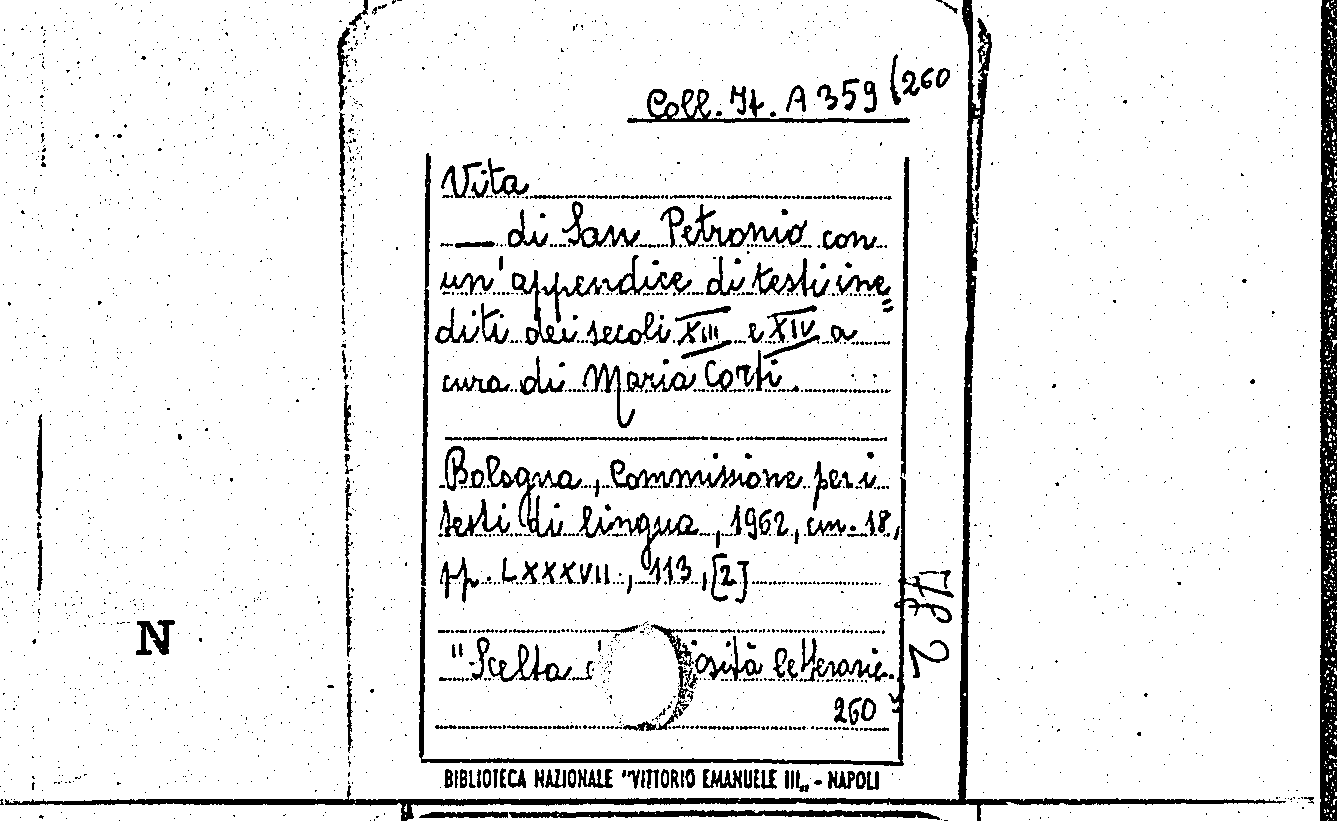 Coll. It. A 359 (260
Vita
— di San Petronio con
un'appendice di testi ine=
diti dei secoli XIII e XIV a
cura di Maria Corti.
Bologna, Commissione per i
testi di lingua, 1962, cm. 18,
pp. LXXXVII, 113, [2]
"Scelta osità letterarie.
260
N
BIBLIOTECA NAZIONALE "VITTORIO EMANUELE III„ - NAPOLI